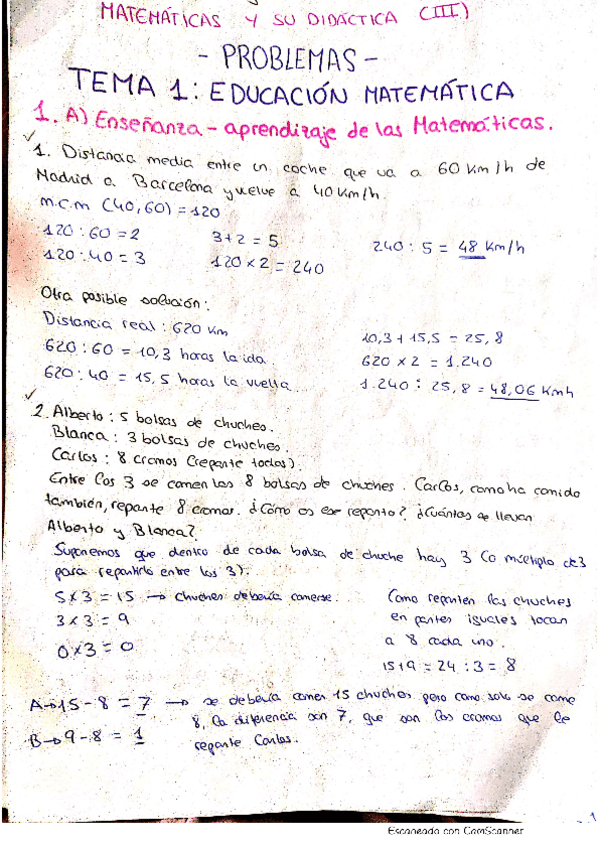 MATEMÁTICAS Y SU DIDÁCTICA (III)
- PROBLEMAS -
TEMA 1: EDUCACIÓN MATEMÁTICA
1. A) Enseñanza - aprendizaje de las Matemáticas.
1. Distancia media entre un coche que va a 60 Km/h de
Madrid a Barcelona y vuelve a 40 Km/h.
m.c.m (40,60) = 120
120 : 60 = 2 3+2 = 5 240 : 5 = 48 Km/h
120 : 40 = 3 120 x 2 = 240
Otra posible solución:
Distancia real : 620 Km 10,3 + 15,5 = 25,8
620 : 60 = 10,3 horas la ida. 620 x 2 = 1.240
620 : 40 = 15,5 horas la vuelta. 1.240 : 25,8 = 48,06 Kmh
2. Alberto : 5 bolsas de chuches.
Blanca : 3 bolsas de chuches.
Carlos : 8 cromos (reparte todos).
Entre los 3 se comen las 8 bolsas de chuches. Carlos, como ha comido
también, reparte 8 cromos. ¿Cómo es ese reparto? ¿Cuántos se llevan
Alberto y Blanca?
Suponemos que dentro de cada bolsa de chuche hay 3 (o múltiplo de 3
para repartirlo entre los 3).
5 x 3 = 15 → chuches debería comerse.
3 x 3 = 9
0 x 3 = 0
Como reparten las chuches
en partes iguales tocan
a 8 cada uno.
15+9 = 24 : 3 = 8
A → 15 - 8 = 7 → se debería comer 15 chuches pero como solo se come
8, la diferencia son 7, que son los cromos que le
reparte Carlos.
B → 9 - 8 = 1
1
Escaneado con CamScanner